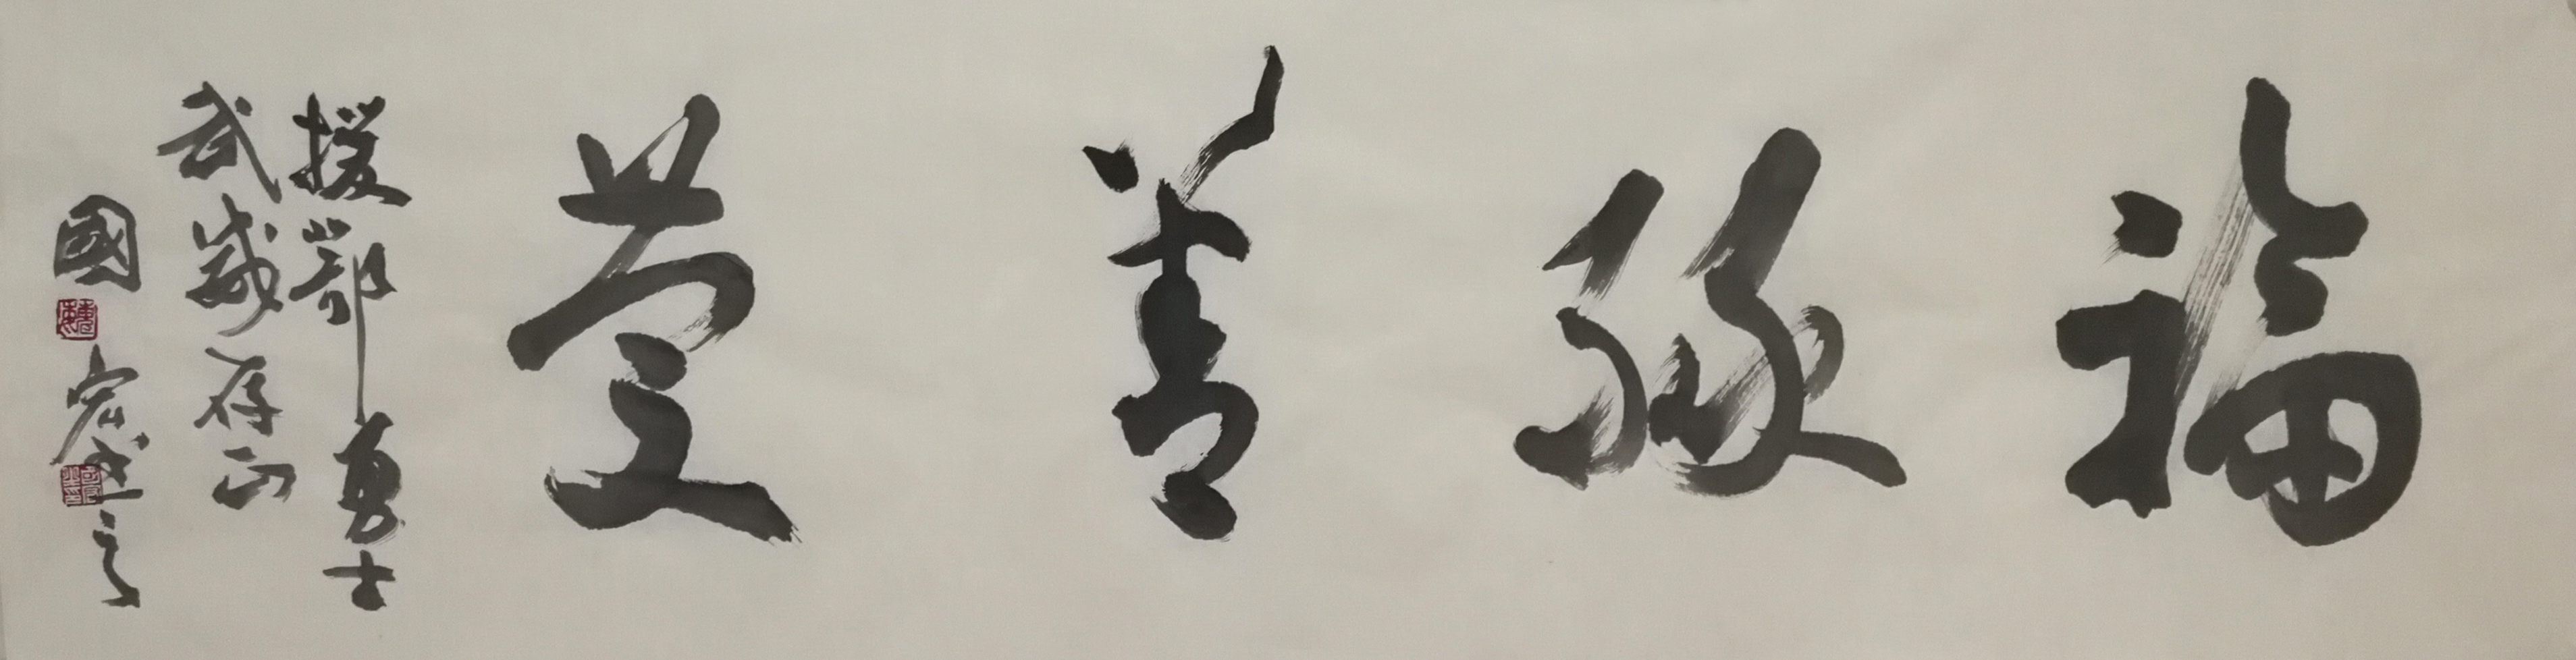 福緣善慶
援鄂勇士
武崴存正
國宏之